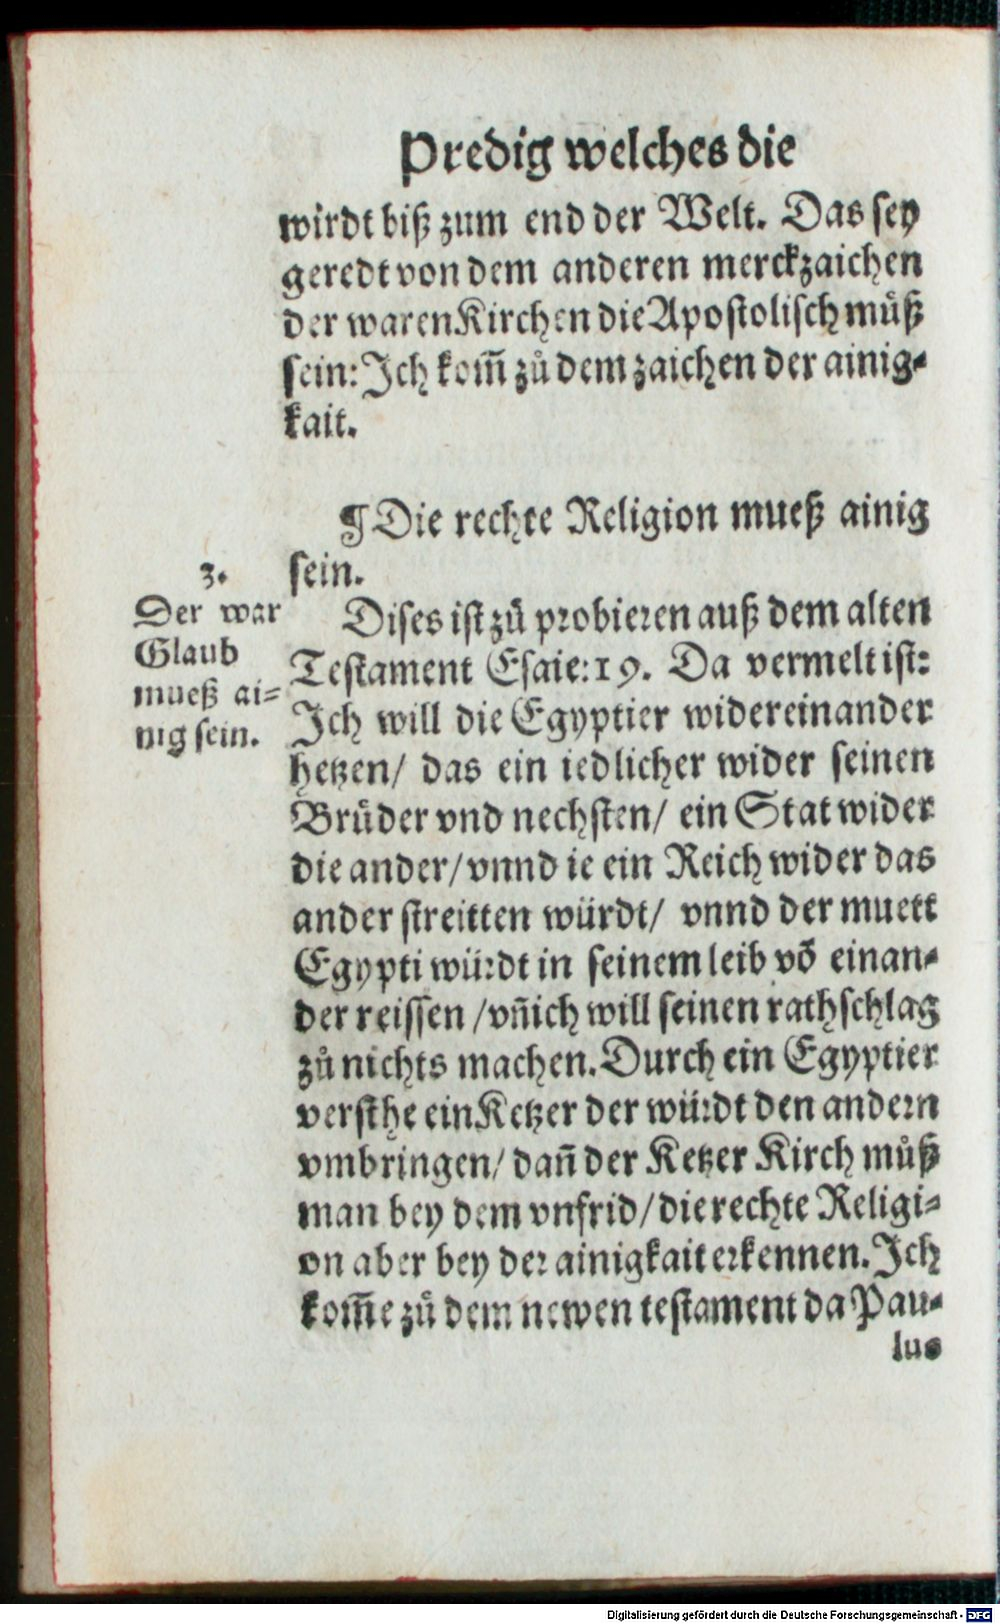 Predig welches die
wirdt biß zum end der Welt. Das sey
geredt von dem anderen merckzaichen
der waren Kirchen die Apostolisch můß
sein: Ich kom̃ zů dem zaichen der ainig-
kait.
¶ Die rechte Religion mueß ainig
sein.
3.
Der war
Glaub
mueß ai-
nig sein.
Dises ist zů probieren auß dem alten
Testament Esaie: 19. Da vermelt ist:
Ich will die Egyptier widereinander
hetzen/ das ein iedlicher wider seinen
Brůder vnd nechsten/ ein Stat wider
die ander/ vnnd ie ein Reich wider das
ander streitten würdt/ vnnd der muett
Egypti würdt in seinem leib võ einan-
der reissen/ vñ ich will seinen rathschlag
zů nichts machen. Durch ein Egyptier
versthe ein Ketzer der würdt den andern
vmbringen/ dañ der Ketzer Kirch můß
man bey dem vnfrid/ die rechte Religi-
on aber bey der ainigkait erkennen. Ich
kom̃e zů dem newen testament da Pau-
lus
Digitalisierung gefördert durch die Deutsche Forschungsgemeinschaft - DFG